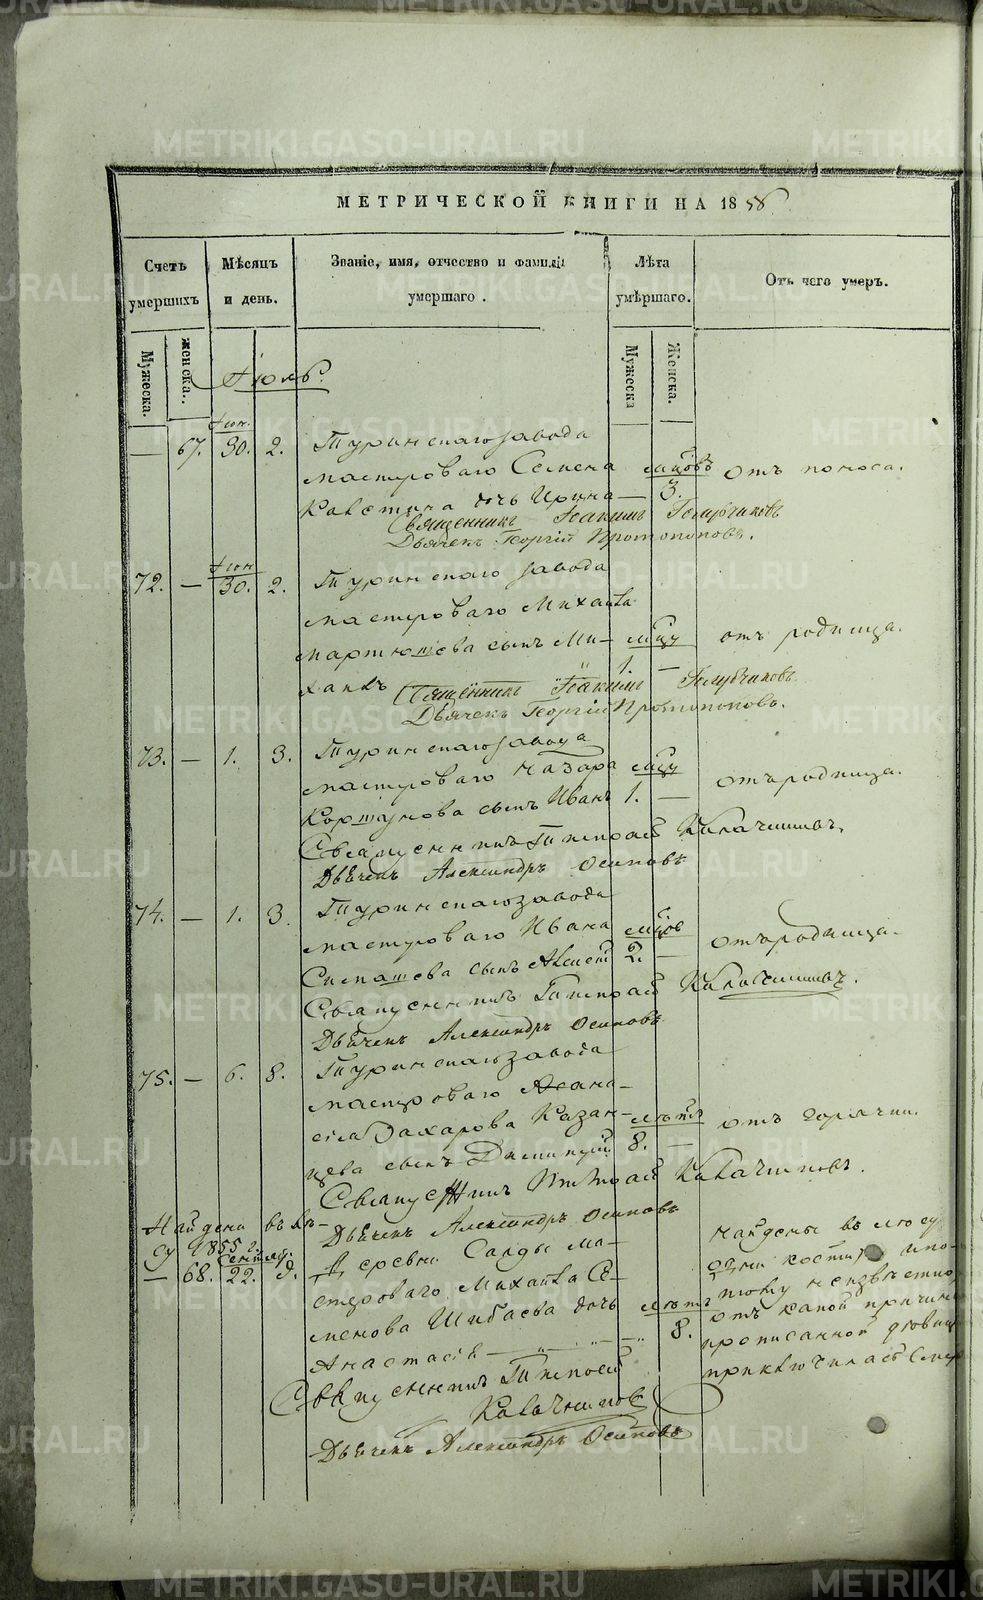 МЕТРИЧЕСКОЙ КНИГИ НА 1856
Счетъ умершихъ
Мѣсяцъ и день.
Званіе, имя, отчество и фамилія умершаго.
Лѣта умершаго.
Отъ чего умеръ.
Мужеска.
женска.
Мужеска
Женска.
Іюль.
Іюн.
— 67. 30. 2. Туринскаго завода
мастероваго Семена мѣцовъ отъ поноса.
дочь Ирина — 3.
Священникъ Іоакимъ Голубчиковъ
Дьячекъ Георгій Протопоповъ.
Іюн
72. — 30. 2. Туринскаго завода
мастероваго Михаила
Мартюшева сынъ Ми- мѣцу отъ родимца.
хаилъ 1. —
Священникъ Іоакимъ Голубчиковъ
Дьячекъ Георгій Протопоповъ.
73. — 1. 3. Туринскаго завода
мастероваго Назара мѣцу отъ родимца.
Коршунова сынъ Иванъ 1. —
Священникъ Калачниковъ.
Дьячекъ Александръ Осиповъ
74. — 1. 3. Туринскаго завода
мастероваго Ивана мѣцов отъ родимца.
сынъ 2. —
Священникъ Калачниковъ.
Дьячекъ Александръ Осиповъ
75. — 6. 8. Туринскаго завода
мастероваго Афана-
сія Захарова Казан- лѣтъ отъ горячки.
цева сынъ Димитрій 8. —
Священникъ Калачниковъ.
Дьячекъ Александръ Осиповъ
Найдена въ лѣ-
су 1855 г.
Сентяб.
— 68. 22. Деревни Салды ма-
стероваго Михаила Се-
менова Шибаева дочь лѣтъ
Анастасія — 8.
найдены въ лесу
одни кости, и по-
тому неизвѣстно,
отъ какой причины
прописанной
приключилась
Священникъ
Калачниковъ
Дьячекъ Александръ Осиповъ
METRIKI.GASO-URAL.RU